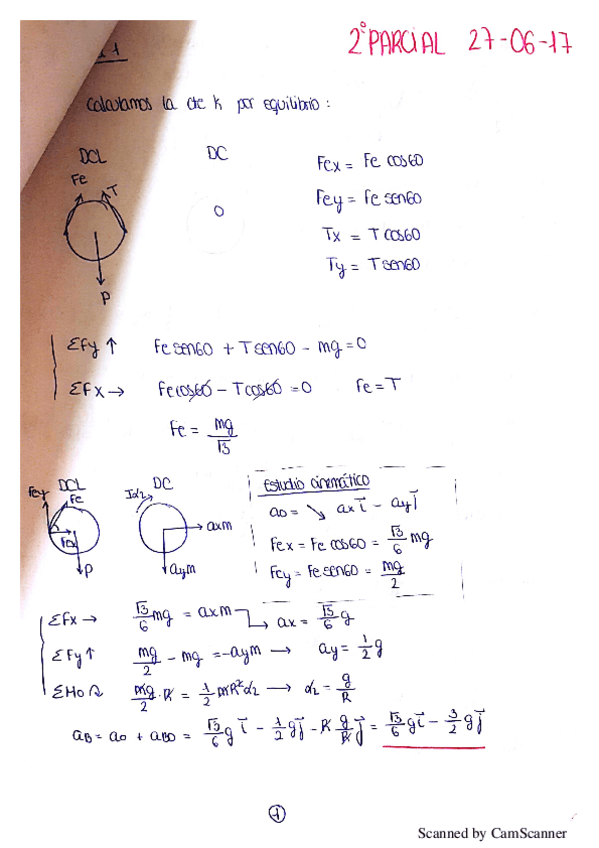 2º PARCIAL 27-06-17
1
Calculamos la cte k por equilibrio:
DCL DC
Fe T
O
P
Fex = Fe cos60
Fey = Fe sen60
Tx = T cos60
Ty = T sen60
ΣFy ↑ Fe sen60 + T sen60 - mg = 0
ΣFx → Fe cos60 - T cos60 = 0 Fe = T
Fe = mg/√3
DCL DC
Fey Fe
Fex
P
Iα2
axm
aym
Estudio cinemático
ao = ↘ ax i - ay j
Fex = Fe cos60 = √3/6 mg
Fey = Fe sen60 = mg/2
ΣFx → √3/6 mg = axm → ax = √3/6 g
ΣFy ↑ mg/2 - mg = -aym → ay = 1/2 g
ΣMo mg/2 · R = 1/2 mR² α2 → α2 = g/R
aB = ao + aBO = √3/6 g i - 1/2 g j - R g/R j = √3/6 g i - 3/2 g j
1
Scanned by CamScanner